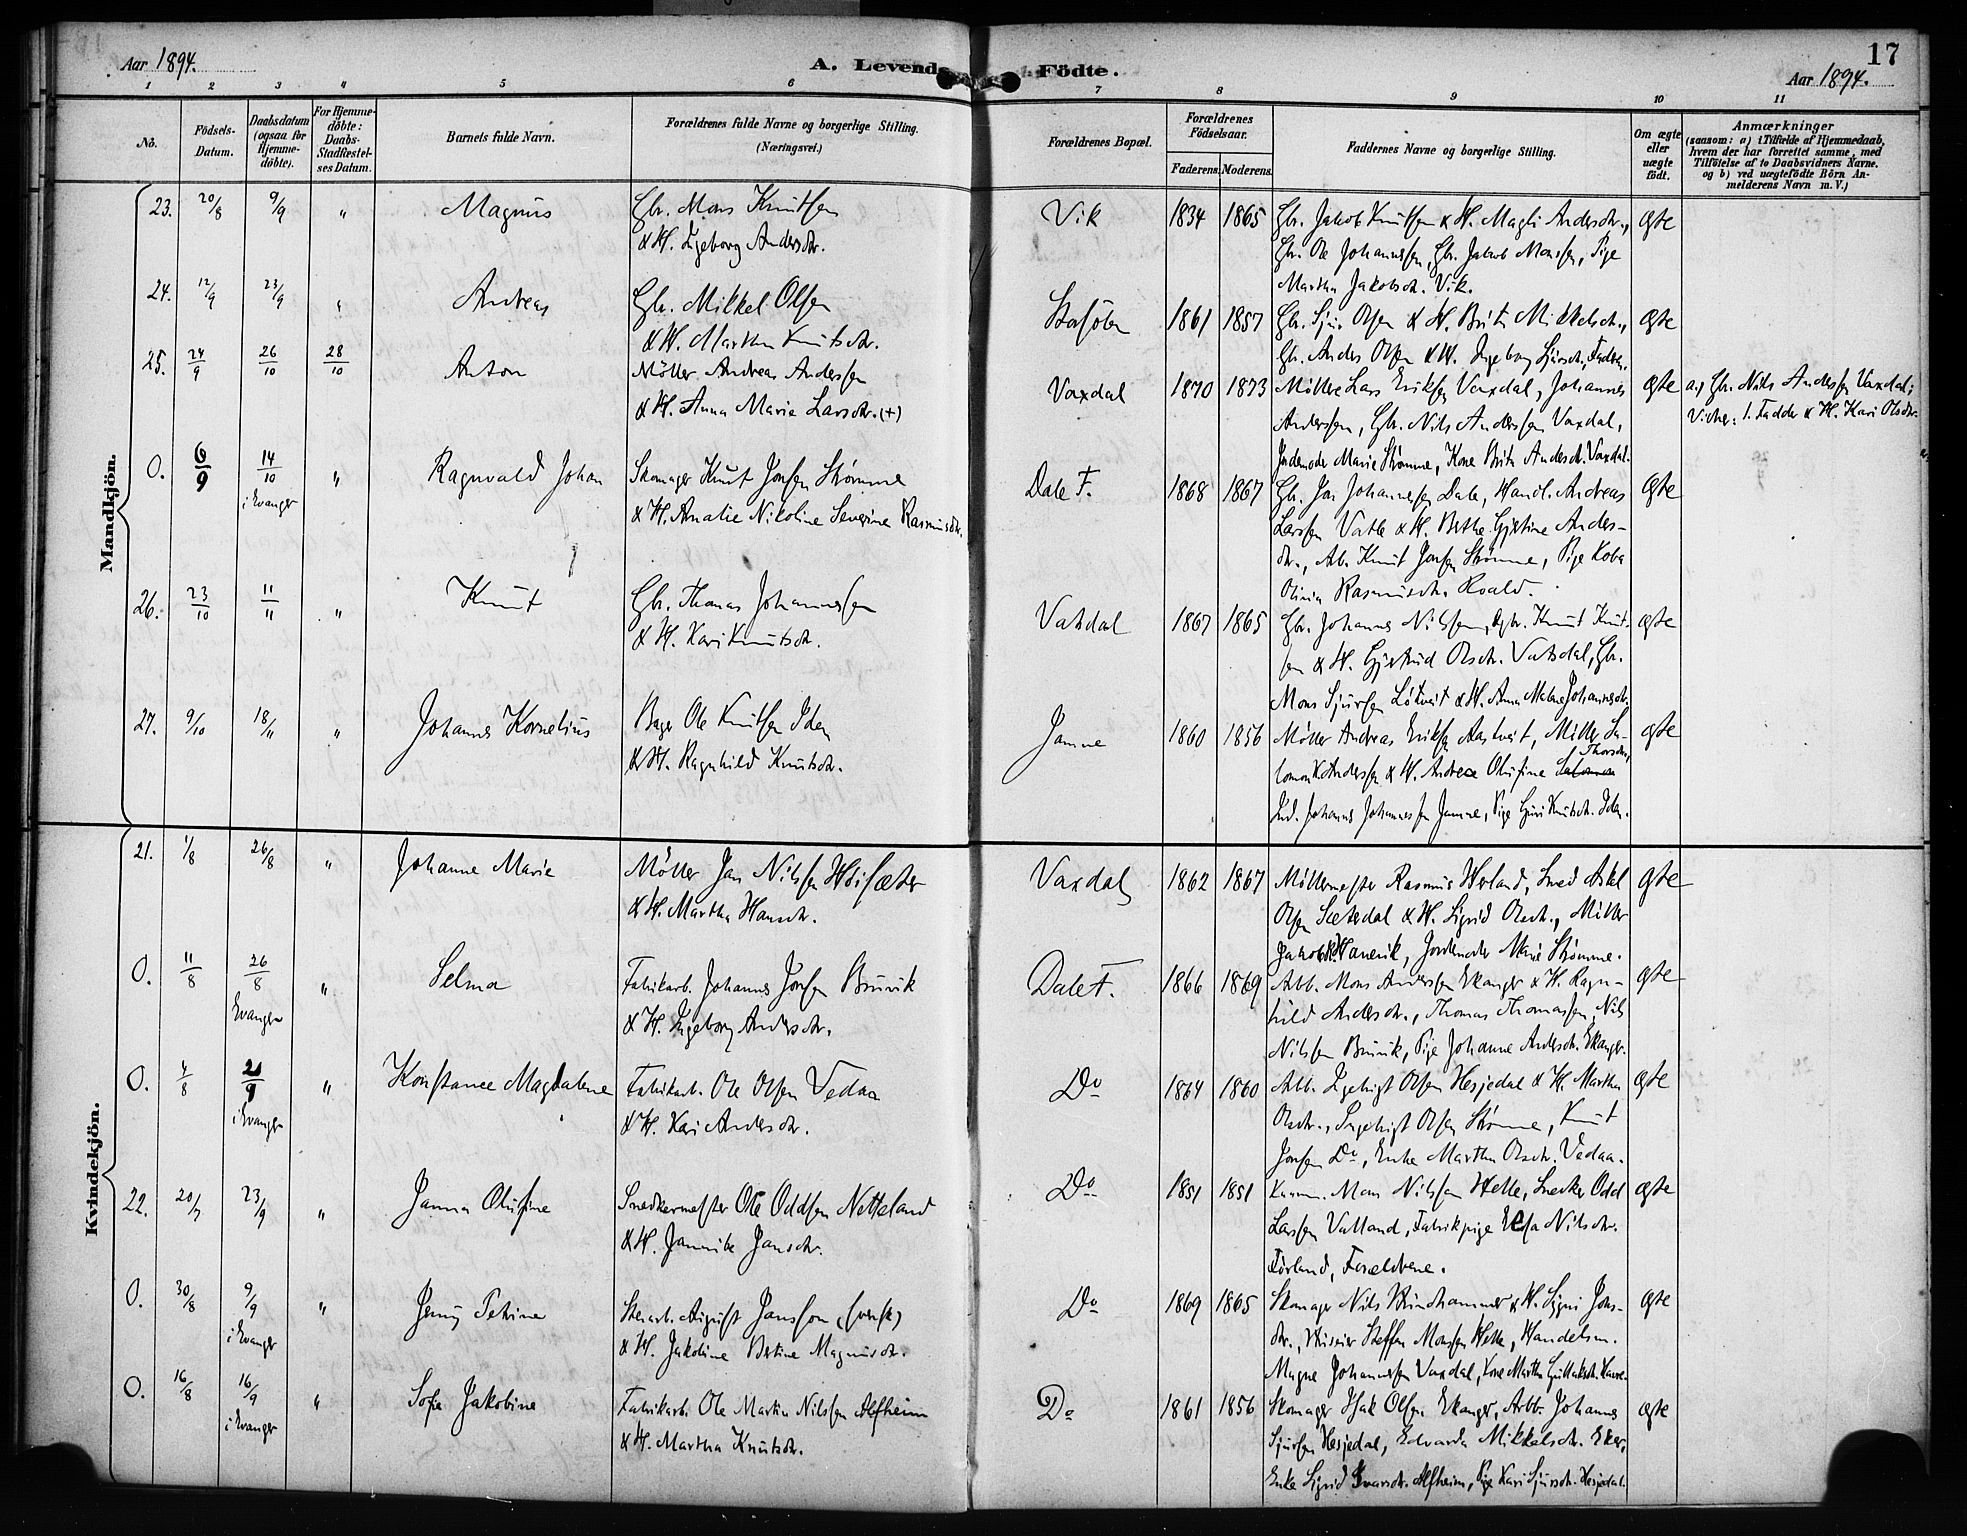 Aar 1894.
A. Levende Födte.
17
Aar 1894.
1 2 3 4 5 6 7 8 9 10 11
No.
Födsels-Datum.
Daabsdatum (ogsaa for Hjemmedöbte).
For Hjemmedöbte: Daabs-Stadfæstelses Datum.
Barnets fulde Navn.
Forældrenes fulde Navne og borgerlige Stilling. (Næringsvei.)
Forældrenes Bopæl.
Forældrenes Födselsaar.
Faderens. Moderens.
Faddernes Navne og borgerlige Stilling.
Om ægte eller uægte födt.
Anmærkninger
(saasom: a) i Tilfælde af Hjemmedaab, hvem der har forrettet samme, med Tilföielse af to Daabsvidners Navne, og b) ved uægtefödte Börn Anmelderens Navn m. V.)
Mandkjön.
23. 20/8 9/9 " Magnus Gbr. Mons Knutsen
& H. Ingeborg Andersdtr.
Vik 1834 1865 Gbr. Jakob Knutsen & H. Magli Andersdtr., ægte
Gbr. Ole Johannessen, Gbr. Jakob Monssen, Pige
Martha Jakobsdtr. Vik.
24. 12/9 23/9 " Andreas Gbr. Mikkel Olsen
& H. Martha Knutsdtr.
1861 1857 Gbr. Sju. Olsen & H. Brita Mikkelsdtr., ægte
Gb. Anders Olsen & H. Ingeborg Sjursdtr., Fadren.
25. 24/9 26/10 28/10 Anton Möller Andreas Anderssen
& H. Anna Marie Larsdtr. (+)
Vaxdal 1870 1873 Möller Lars Eriksen Vaxdal, Johannes ægte
Anderssen, Gbr. Nils Anderssen Vaxdal,
Jordemoder Marie Strømme, Kone Brita Andersdtr. Vaxdal.
a) Gbr. Nils Anderssen Vaxdal;
Vidner: 1. Fadder & H. Kari Olsdtr.
0. 6/9 14/10 i Evanger " Ragnvald Johan Skomager Knut Jonsen Strømme
& H. Amalie Nikoline Severine Rasmusdtr.
Dale F. 1868 1867 Gbr. Jon Johannessen Dale, Handl. Andreas ægte
Larssen Vatle & H. Berthe Gjertine Anders-
dtr., Arb. Knut Jonsen Strømme, Pige
Olivia Rasmusdtr. Roald.
26. 23/10 11/11 " Knut Gbr. Thomas Johannessen
& H. Kari Knutsdtr.
Vatsdal 1867 1865 Gbr. Johannes Nilssen, Gbr. Knut Knut- ægte
sen & H. Gjertrud Olsdtr. Vatsdal, Gbr.
Mons Sjursen & H. Anna Malene Johannesdtr.
27. 9/10 18/11 " Johannes Kornelius Bager Ole Knutsen Iden
& H. Ragnhild Knutsdtr.
Jamne 1860 1856 Møller Andreas Eriksen Aastveit, Møller Sa- ægte
lomon K. Anderssen & H. Andrea Olufine Thorsdtr.,
Ind. Johannes Johannessen Jamne, Pige Guri Knutsdtr. Iden.
Kvindekjön.
21. 1/8 26/8 " Johanne Marie Möller Jan Nilssen Høisæter
& H. Martha Hansdtr.
Vaxdal 1862 1867 Møllermester Rasmus Herland, Smed Askel ægte
Olsen Sætesdal & H. Sigrid Olsdtr., Møller
Jakob K. Vanevik, Jordemoder Marie Strømme.
0. 11/8 26/8 Evanger " Selma Fabrikarb. Johannes Jonsen Bruvik
& H. Ingeborg Andersdtr.
Dale F. 1866 1869 Arb. Mons Anderssen Ekanger & H. Ragn- ægte
hild Andersdtr., Thomas Thomassen, Nils
Nilssen Bruvik, Pige Johanne Andersdtr. Ekanger.
0. 4/8 2/9 i Evanger " Konstance Magdalene Fabrikarb. Ole Olsen Vedaa
& H. Kari Andersdtr.
Do 1864 1860 Arb. Ingebrigt Olsen Hesjedal & H. Martha ægte
Olsdtr., Ingebrigt Olsen Strømme, Knut
Jonsen Do, Enke Martha Olsdtr. Vedaa.
22. 20/7 23/9 " Janna Olufine Snedkermester Ole Oddsen Netteland
& H. Jannike Jansdtr.
Do 1851 1851 Mons Nilssen Helle, Snedker Odd ægte
Larssen Valland, Fabrikpige Elsa Nilsdtr.
Førland, Forældrene.
0. 30/8 9/9 i Evanger " Jenny Petrine Stenarb. August Jansson (svensk)
& H. Jakobine Bertine Magnusdtr.
Do 1869 1865 Skomager Nils Brudhammer & H. Signi Jons- ægte
dtr., Steffen Monssen Helle, Handelsm.
Magne Johannessen Vaxdal, Kone Martha Gullaksdtr.
0. 16/8 16/9 i Evanger " Sofie Jakobine Fabrikarb. Ole Martin Nilssen Alfheim
& H. Martha Knutsdtr.
Do 1861 1856 Skomager Isak Olsen Ekanger, Arb. Johannes ægte
Sjursen Hesjedal, Edvarda Mikkelsdtr. Eker,
Enke Sigrid Ivarsdtr. Alfheim, Pige Kari Sjursdtr. Hesjedal.